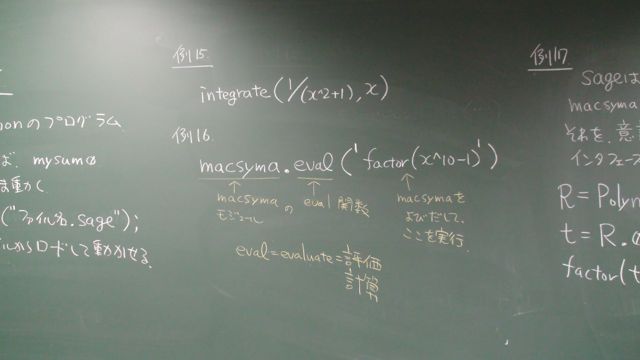 onのプログラム
ば、mysum
動く
("ファイル名.sage");
ルからロードして動かせる.
例15.
integrate(1/(x^2+1), x)
例16.
macsyma.eval('factor(x^10-1)')
macsyma
モジュール の eval 関数
macsymaを
よびだして、
ここを実行.
eval=evaluate=評価
計算
例17.
Sageは
macsyma
それを、意
インタフェース
R = Polyn
t = R.
factor(t